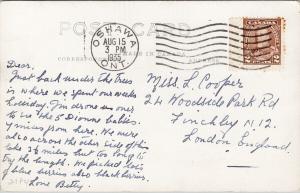 POST CARD
CORRESPONDENCE
MADE IN CANADA
OSHAWA
AUG 15
3 PM
1935
ONT.
CANADA
2
Dear.
Just back under the trees
is where we spent our weeks
holiday. Jim drove us over
to see the 5 Dionne babies.
7 miles from here. We were
also across the other side of this
lake 3½ miles but too long to
try the length. We picked lots
of blue berries also blackberries.
Love Betty.
Miss. L. Cooper
24 Woodside Park Rd
Finchley N.12.
London England.